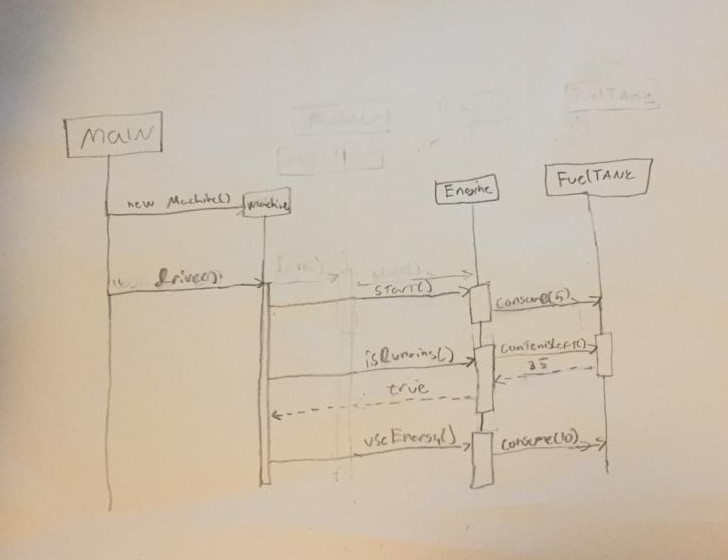 Main
new Machine()
Machine
Engine
FuelTANK
FuelTANK
drive()
start()
consume(5)
isRunning()
contentsLeft()
35
true
useEnergy()
consume(10)